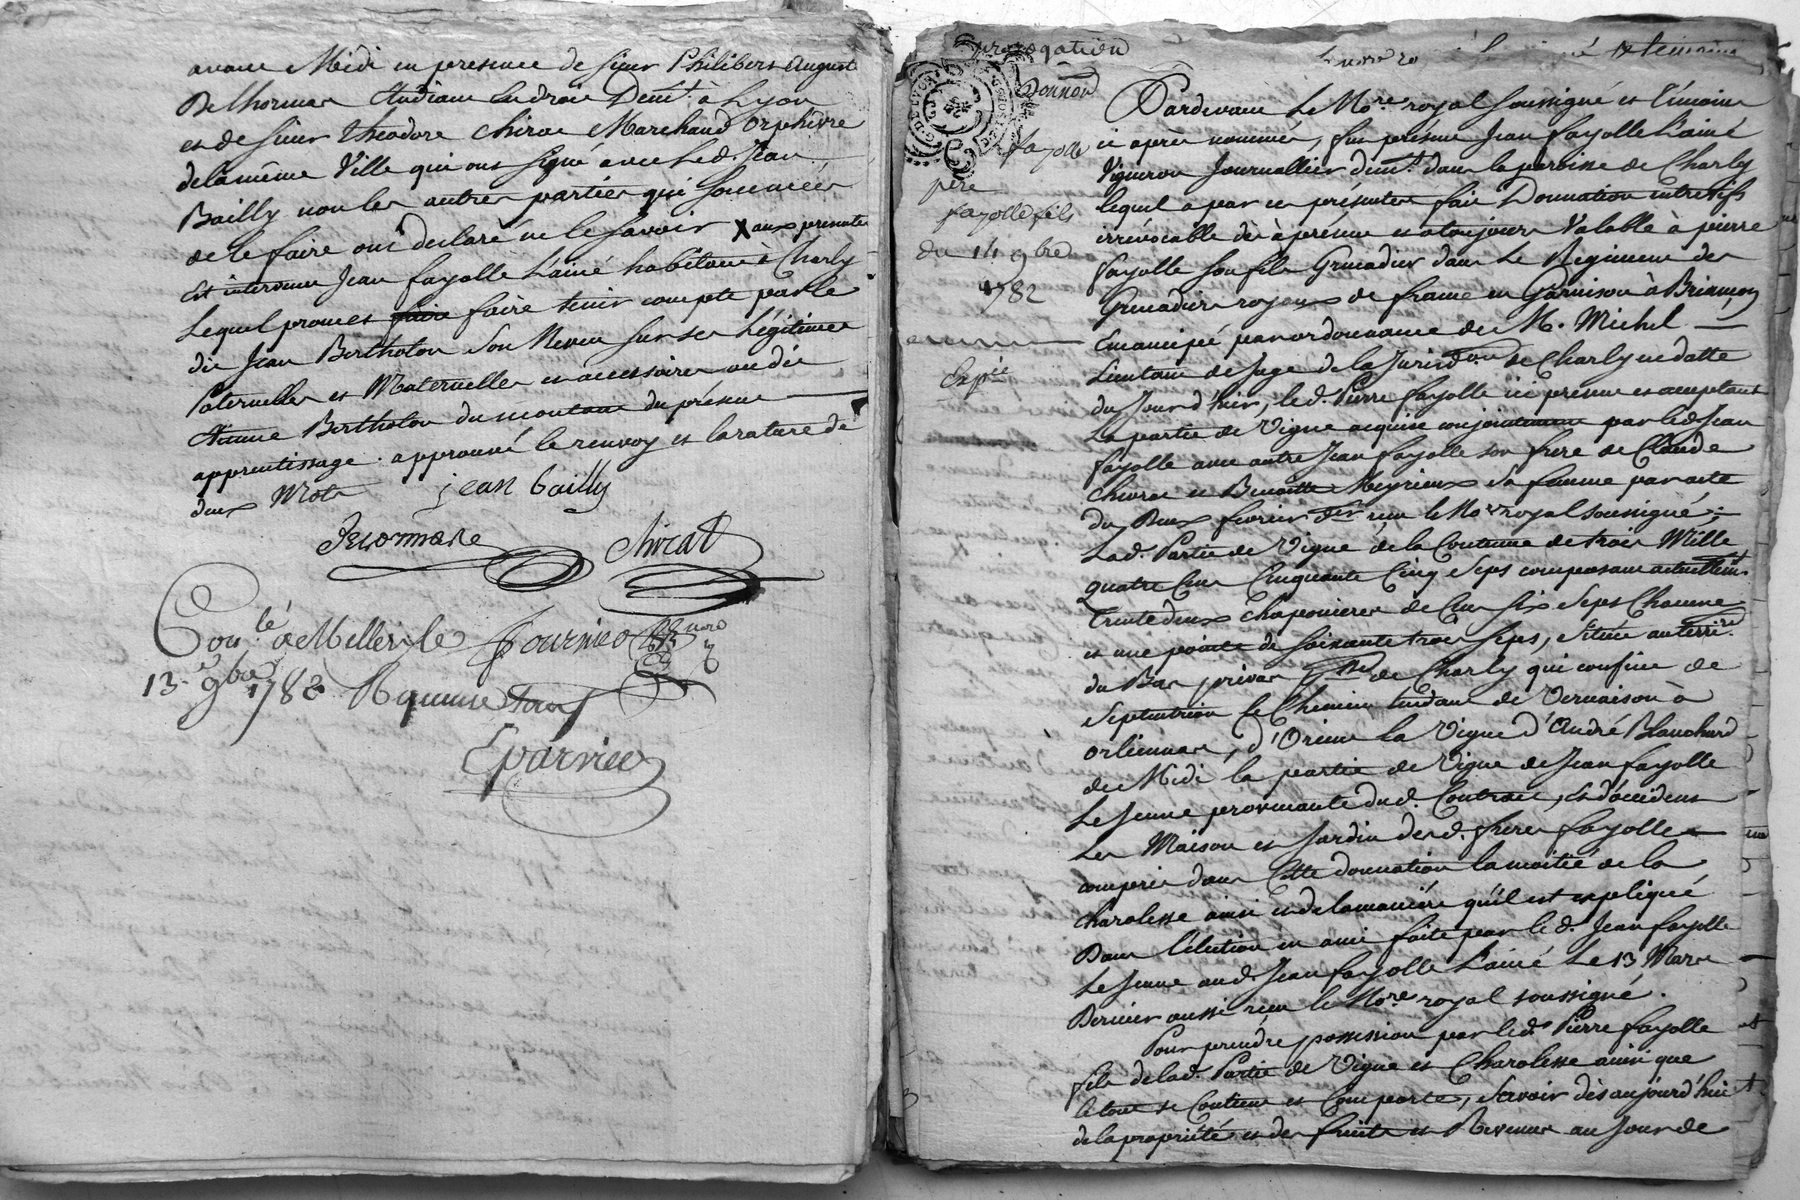 avant Midi en presence de sieur Philibert Auguste
Delhorme Etudiant en droit Demt. à Lyon
et de sieur Theodore Chirat Marchand Orphévre
de la même Ville qui ont signé avec led. Jean
Bailly non les autres parties qui sommées
de le faire ont declaré ne le savoir X aux presentes
est intervenu Jean fayolle L'ainé habitant à Charly
Lequel promet faire faire tenir compte par le
dit Jean Bertholon son Neveu sur ses Légitimes
Paternelles et Maternelles et accessoires audit
Etienne Bertholon du montant du présent
apprentissage. approuvé le renvoy et la rature de
deux Mots jean bailly
Delormere Chirat
Con.lé à Millery le
13 e 9bre 1782
Eparvier
Donnon
fayolle
père
fayolle fils
du 14 9bre
1782
Expié
Pardevant Le Nore. royal soussigné et témoins
ci après nommés, fut présent Jean fayolle L'ainé
Vigneron Journallier demt. dans la paroisse de Charly
lequel a par ces présentes fait Donnation entrevifs
irrévocable dès àprésent et atoujours Valable à pierre
fayolle son fils Grenadier dans Le Regiment des
Grenadiers royaux de france en Garnison à Briançon
Emancipé par ordonnance de M. Michel
Lieutent de Juge de la Jurisdon de Charly en datte
du Jour d'hier, led. Pierre fayolle ici present et acceptant
La partie de Vigne acquise conjointement par led. Jean
fayolle avec autre Jean fayolle son frere de Claude
Chirat et Benoitte Meyrieux sa femme par acte
du Deux fevrier der. reçu le Nore royal soussigné;
Lad. Partie de Vigne de la Contenue de trois Mille
quatre Cent Cinquante Cinq Seps composant actuellemt.
Trente deux chaponieres de Cent six Seps Chacune
et une pointe de soixante trois seps, située au terrire.
du Bas privas psse de Charly qui confine de
Septentrion le Chemin tendant de Vernaison à
Orliennas, d'Orient la Vigne d'André Blanchard
de Midi la partie de Vigne de Jean fayolle
Le Jeune provenante dud. Contrat, et d'occident
Les Maison et Jardin desd. freres fayolle
compris dans Cette donnation la moitié de la
Charolesse ainsi et de la maniére qu'il est expliqué
Dans l'élection en ami faite par led. Jean fayolle
Le Jeune aud. Jean fayolle L'ainé Le 13 Mars
Dernier aussi reçu le Nore royal soussigné.
Pour prendre possession par led. Pierre fayolle
fils de lad. Partie de Vigne et Charolesse ainsi que
le tout se Contient et Comporte, Savoir dès aujourd'hui
de la proprieté et des fruits et Revenus au Jour de